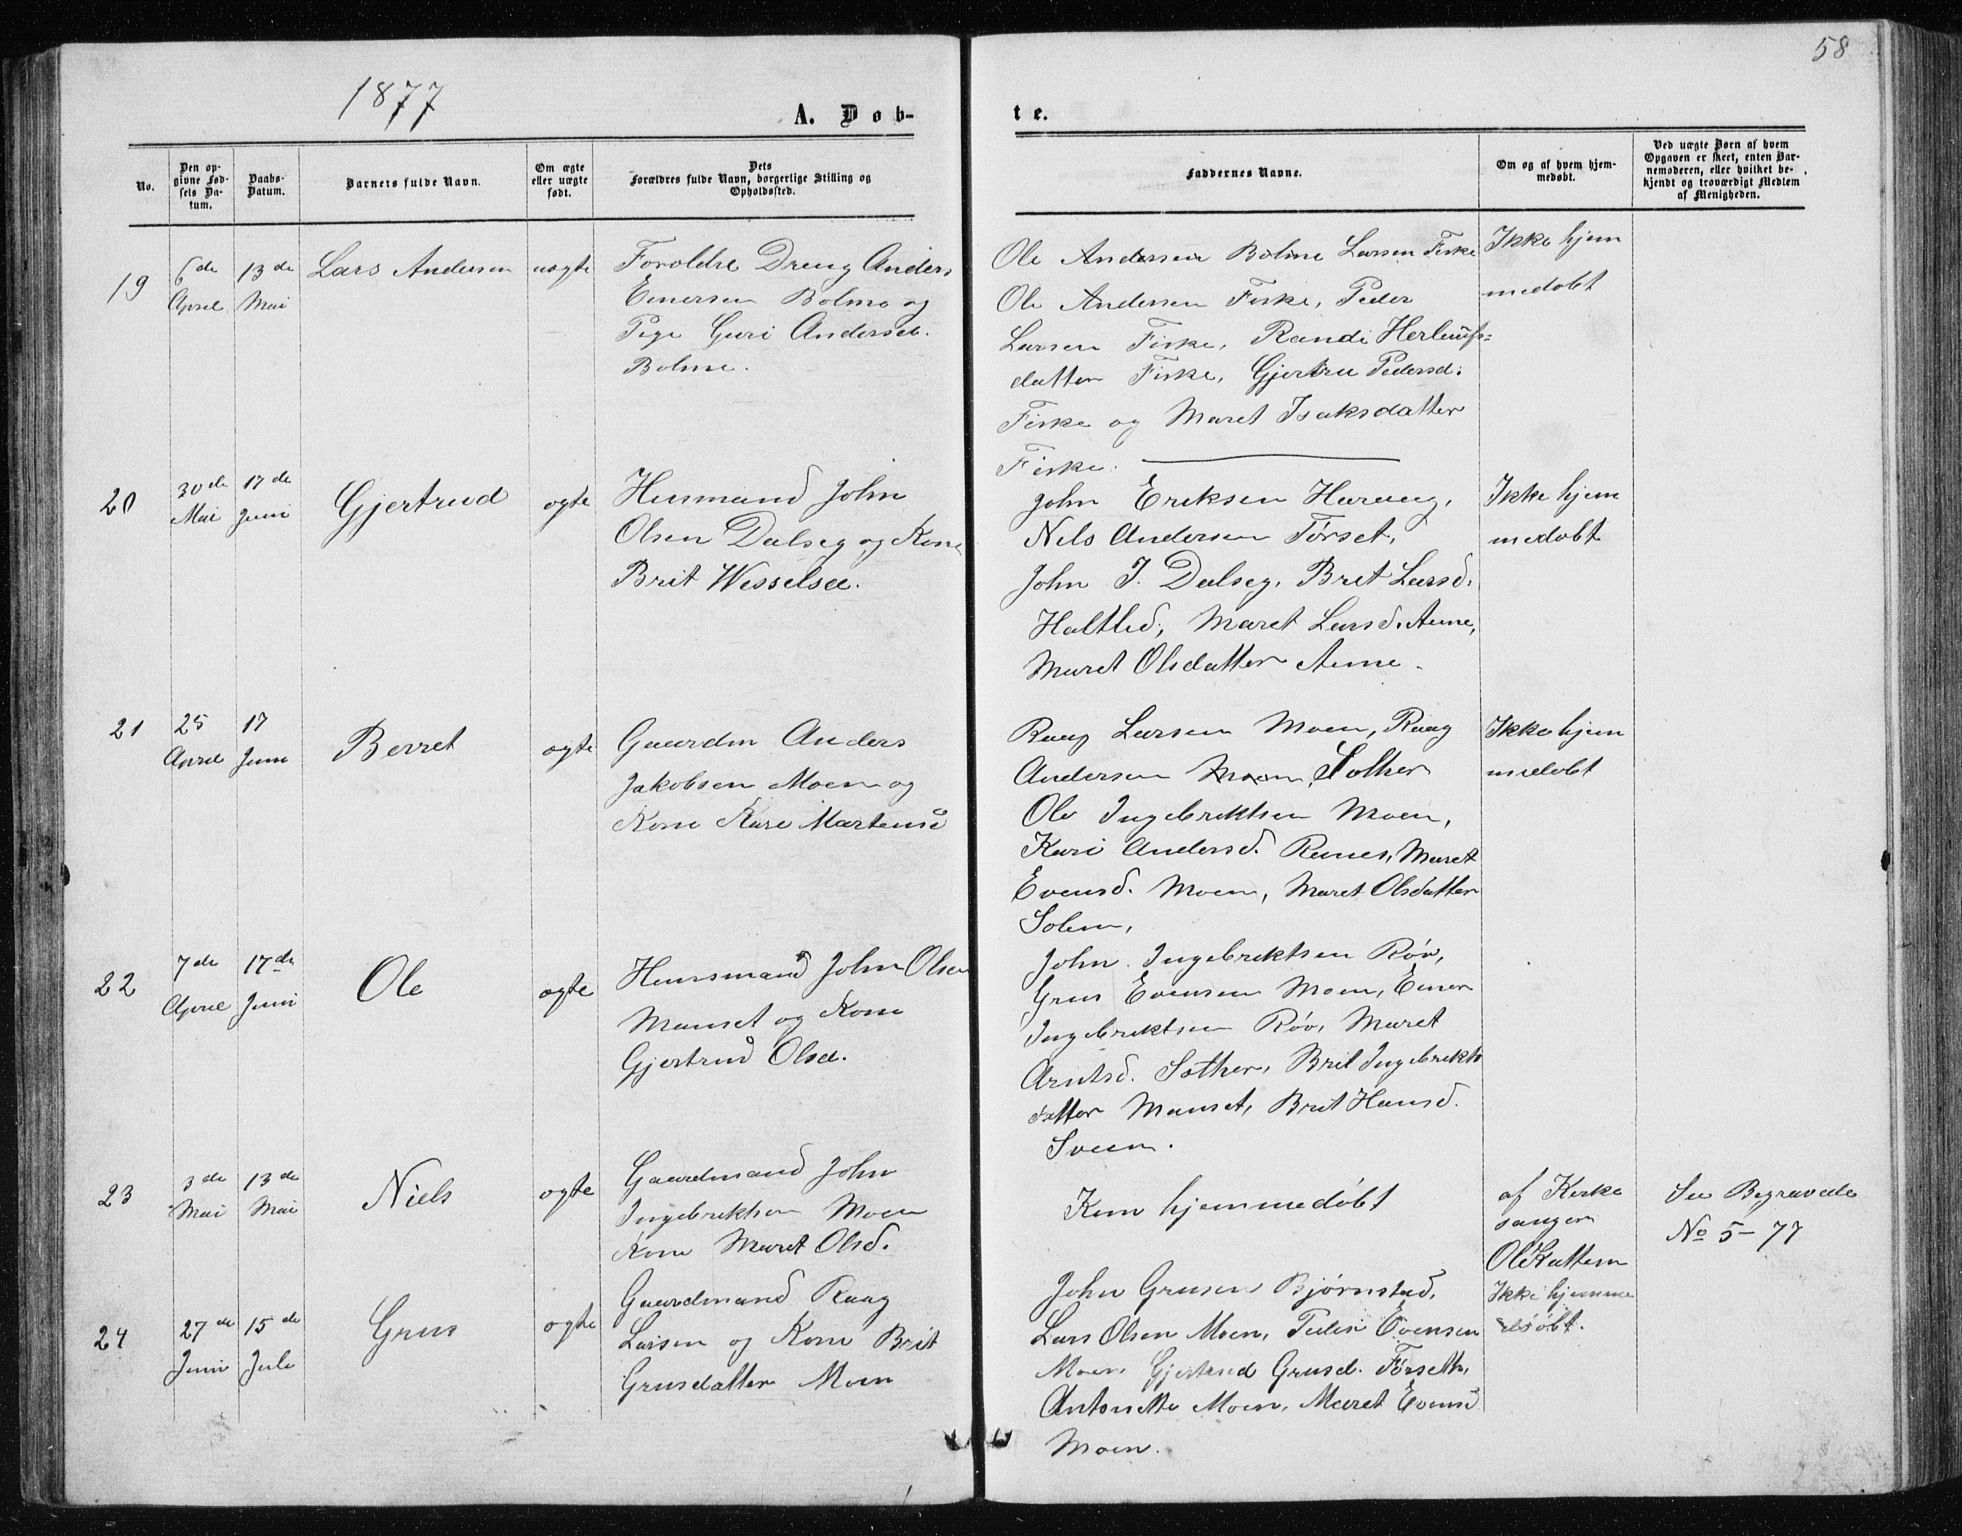 58
1877
A. Døb-
te.
No.
Den op-
givne Fød-
sels Da-
tum.
Daabs-
Datum.
Barnets fulde Navn.
Om ægte
eller uægte
født.
Dets
Forældres fulde Navn, borgerlige Stilling og
Opholdssted.
Faddernes Navne.
Om og af hvem hjem-
medøbt.
Ved uægte Børn af hvem
Opgaven er skeet, enten Bar-
nemoderen, eller hvilket be-
kjendt og troværdigt Medlem
af Menigheden.
19
6de
April
13de
Mai
Lars Andersen
uægte
Foroldre Dreng Anders
Einersen Bolme og
Pige Guri Andersd.
Bolme.
Ole Andersen Bolme Larsen Fiske
Ole Andersen Fiske, Peder
Larsen Fiske, Randi Herlaufs=
datter Fiske, Gjertru Pedersd.
Fiske og Maret Isaksdatter
Fiske.
Ikke hjem
medøbt
20
30de
Mai
17de
Juni
Gjertrud
ogte
Husmand John
Olsen Dalseg og Kone
Brit Wesselsd.
John Eriksen Harang,
Nels Andersen Førset,
John J. Dalseg, Brit Larsd.
Haltlid, Maret Larsd. Aune,
Maret Olsdatter Aune.
Ikke hjem
medøbt
21
25
April
17
Juni
Berret
ogte
Gaardm Anders
Jakobsen Moen og
Kone Kari Martensd
Raag Larsen Moen, Raag
Andersen Moen, Solher
Ole Ingebriktsen Moen,
Kari Andersd. Rames, Maret
Evensd. Moen, Maret Olsdatter
Solem,
Ikke hjem
medøbt
22
7de
April
17de
Juni
Ole
ogte
Huusmand John Olsen
Manset og Kone
Gjertrud Olsd.
John Ingebriktsen Røv,
Grus Evensen Moen, Einer
Ingebriktsen Røv, Maret
Arntsd. Sæther, Brit Ingebrikts
datter Manset, Brit Hansd.
Sveen.
23
3de
Mai
13de
Mai
Niels
ogte
Gaardmand John
Ingebriktsen Moen
Kone Maret Olsd.
Kun hjemmedøbt
af Kirke
sanger
Ole Kattem
See Begravede
No 5-77
24
27de
Juni
15de
Juli
Grus
ogte
Gaardmand Raag
Larsen og Kone Brit
Grusdatter Moen
John Grusen Bjørnstad,
Lars Olsen Moen, Peder Evensen
Moen, Gjertrud Grusd. Førseth,
Antonette Moen, Maret Evensd
Moen.
Ikke hjemme
døbt.